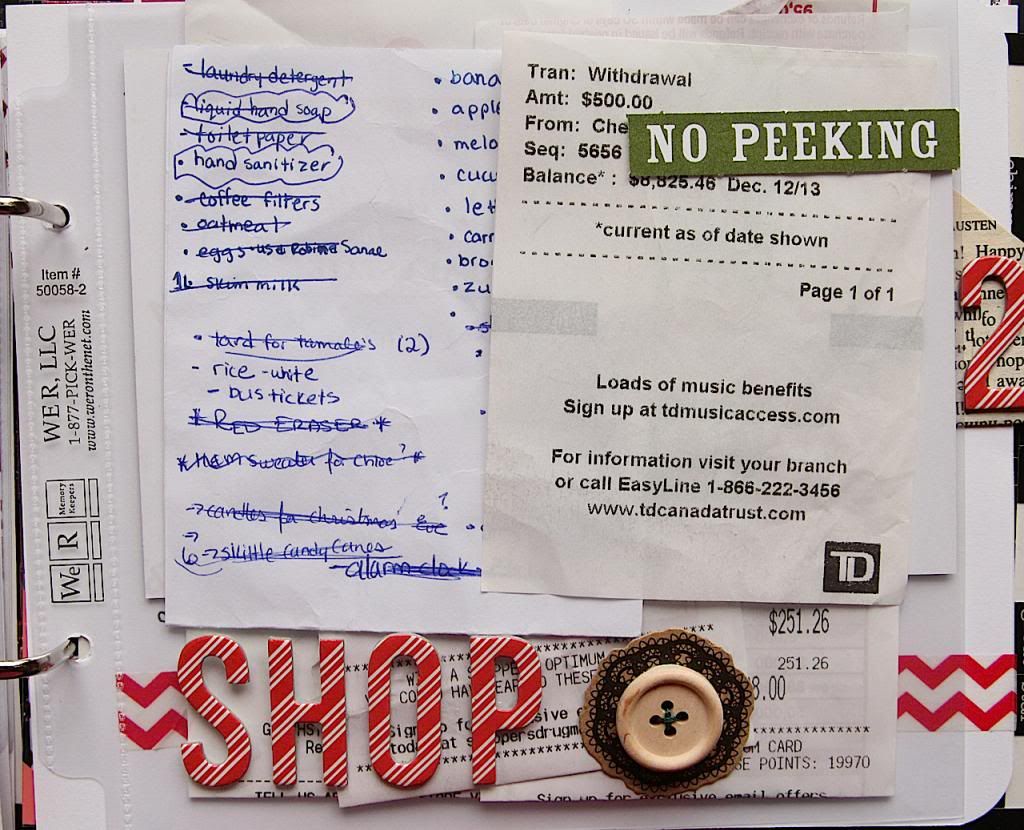 laundry detergent
liquid hand soap
toilet paper
hand sanitizer
coffee filters
oatmeal
eggs
skim milk
lard for tamale's (2)
rice - white
bus tickets
* RED ERASER *
sweater for Chloe?
candles for christmas eve ?
candy canes
alarm clock
bana
apple
melo
cucu
let
carr
bro
zu
Tran: Withdrawal
Amt: $500.00
From: Che
Seq: 5656
Balance* : $8,825.46 Dec. 12/13
NO PEEKING
*current as of date shown
Page 1 of 1
Loads of music benefits
Sign up at tdmusicaccess.com
For information visit your branch
or call EasyLine 1-866-222-3456
www.tdcanadatrust.com
TD
Item #
50058-2
WER, LLC
1-877-PICK-WER
www.weronthenet.com
We R
Memory
Keepers
AUSTEN
Happy
2
SHOP
$251.26
251.26
8.00
OPTIMUM
THESE
CARD
POINTS: 19970
Sign up for exclusive email offers